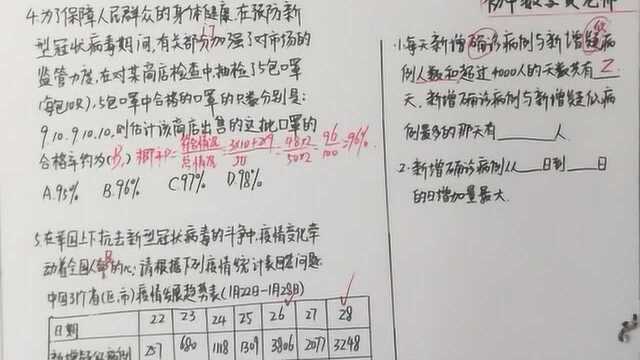 4.为了保障人民群众的身体健康,在预防新
型冠状病毒期间,有关部分加强了对市场的
监管力度,在对某商店检查中,抽检了5包口罩
(每包10只),5包口罩中合格的口罩的只数分别是:
9.10.9.10.10,则估计该商店出售的这批口罩的
合格率约为(B)
A.95% B.96% C.97% D.98%
5.在举国上下抗击新型冠状病毒的斗争中,疫情变化牵
动着全国人的心,请根据下列疫情统计表回答问题:
中国31个省(区,市)疫情发展趋势表(1月22日-1月28日)
日期 22 23 24 25 26 27 28
新增疑似病例 257 680 1118 1309 3806 2077 3248
1.每天新增确诊病例与新增疑似病
例人数和超过4000人的天数共有2
天,新增确诊病例与新增疑似病
例最多的那天有____人.
2.新增确诊病例从____日到____日
的日增加量最大.